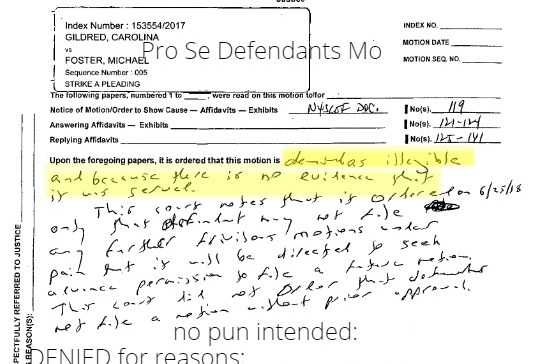 Justice
Index Number : 153554/2017
GILDRED, CAROLINA
vs
FOSTER, MICHAEL
Sequence Number : 005
STRIKE A PLEADING
Pro Se Defendants Mo
INDEX NO.
MOTION DATE
MOTION SEQ. NO.
The following papers, numbered 1 to , were read on this motion to/for
Notice of Motion/Order to Show Cause — Affidavits — Exhibits NYSCEF DOC. No(s). 119
Answering Affidavits — Exhibits No(s). 121-124
Replying Affidavits No(s). 125-141
Upon the foregoing papers, it is ordered that this motion is denied as illegible
and because there is no evidence that
it was served.
This court notes that it ordered on 6/25/18
only that defendant may not file
any further frivolous motions under
pain that it will be directed to seek
advance permission to file a future motion.
This court did not order that defendant
not file a motion without prior approval.
no pun intended:
DENIED for reasons:
PECTFULLY REFERRED TO JUSTICE
REASON(S):